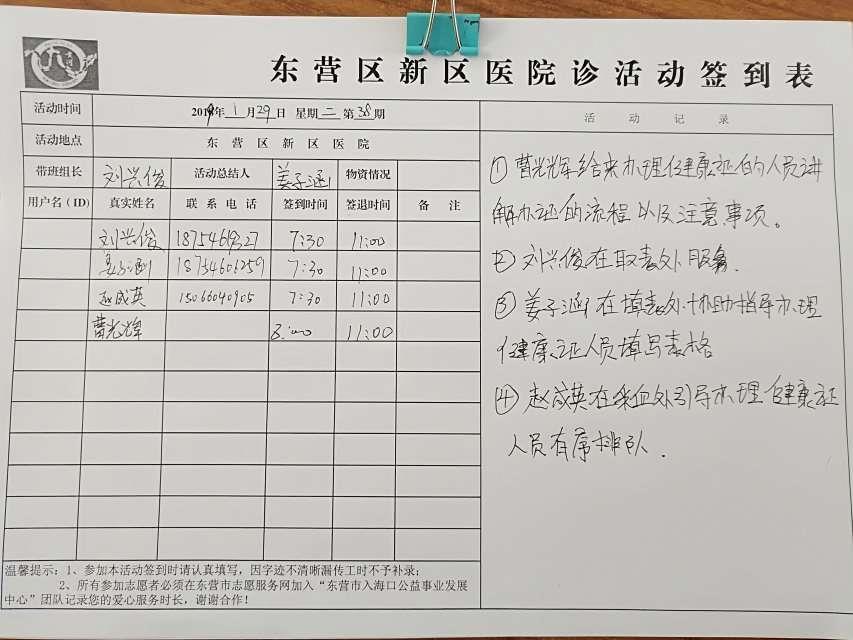 东营区新区医院诊活动签到表
活动时间 2019年1月29日 星期二 第38期
活动地点 东营区新区医院
带班组长 刘兴俊 活动总结人 姜子涵 物资情况
用户名(ID) 真实姓名 联系电话 签到时间 签退时间 备注
刘兴俊 18754619327 7:30 11:00
姜子涵 18754601259 7:30 11:00
赵成英 15066040905 7:30 11:00
曹光辉 8:00 11:00
温馨提示:1、参加本活动签到时请认真填写,因字迹不清晰漏传工时不予补录;
2、所有参加志愿者必须在东营市志愿服务网加入“东营市入海口公益事业发展
中心”团队记录您的爱心服务时长,谢谢合作!
活动记录
①曹光辉给来办理健康证的人员讲
解办证的流程以及注意事项。
②刘兴俊在取表处服务.
③姜子涵在填表处协助指导办理
健康证人员填写表格
④赵成英在采血处引导办理健康证
人员有序排队.